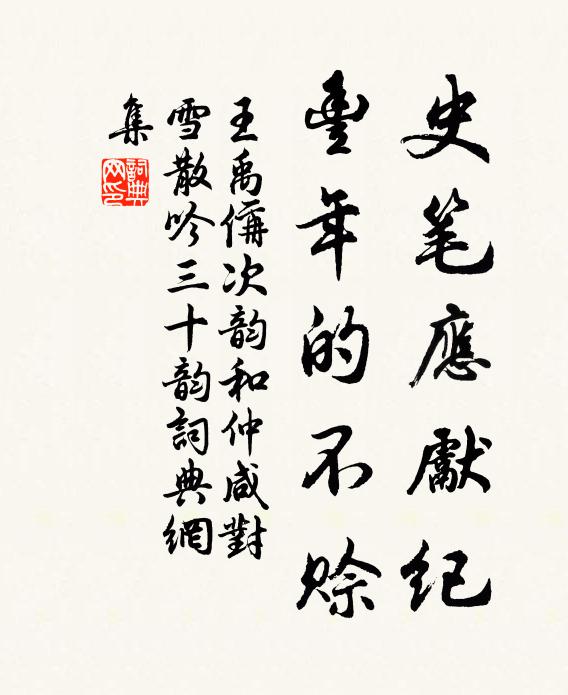 史笔應獻紀
豊年的不賒
王禹偁次韵和仲咸對
雪散吟三十韵詞典網
集
詞典
网印